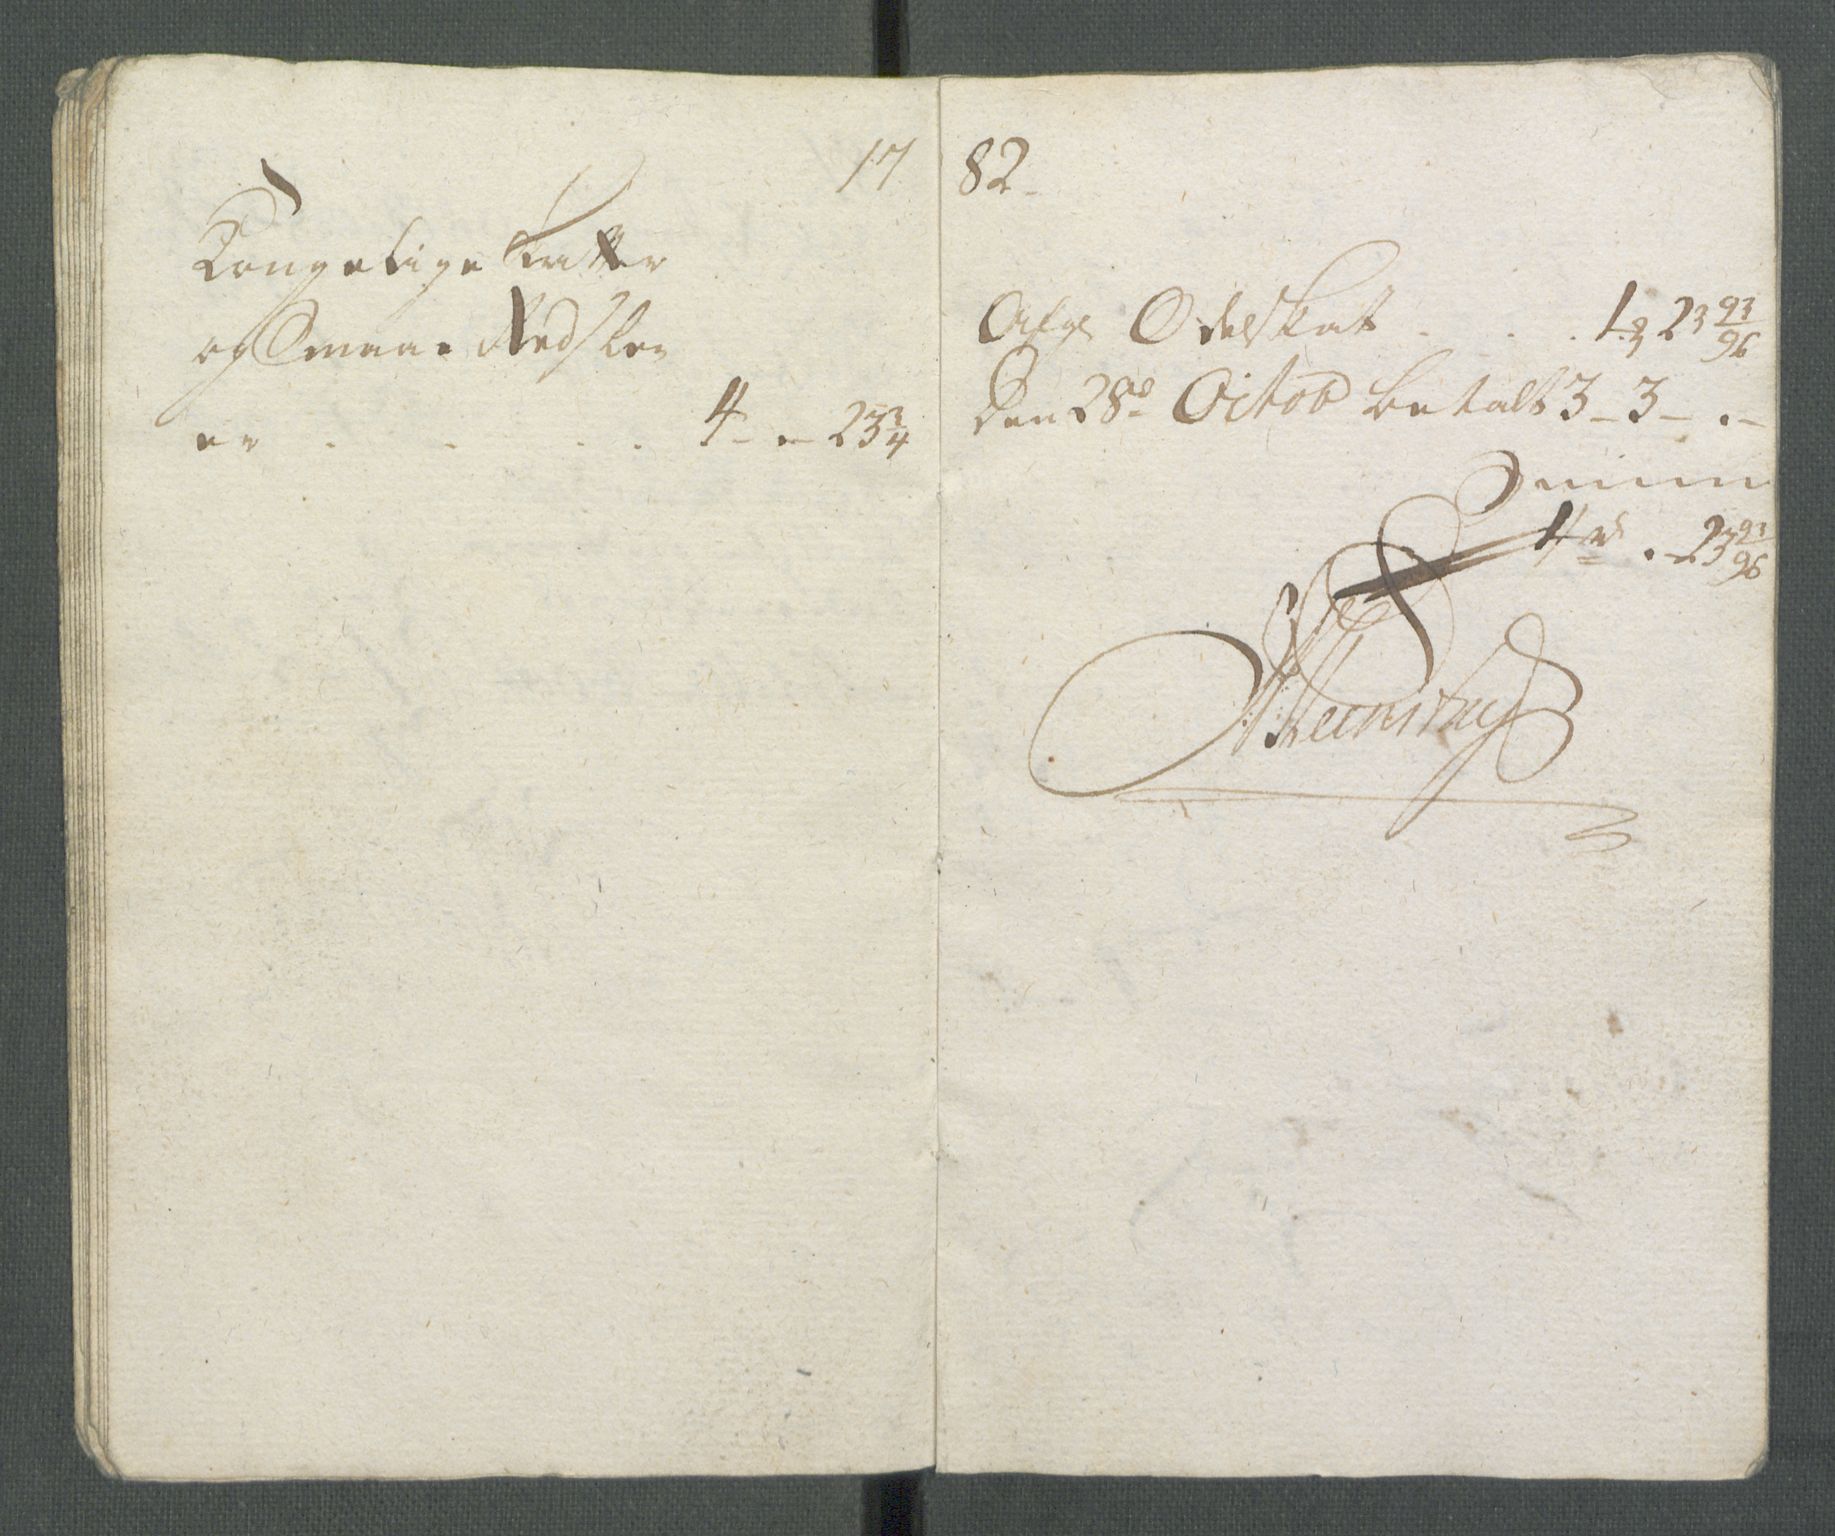 1782
Kongelige Skatter
og Smaae Redsler
er . . . . 4 - . - 23 3/4
Afg Odelskat . . . 1 - 23 93/96
Den 28de Octob betalt 3 - 3 - . -
Summa
4 rd . - 23 93/96